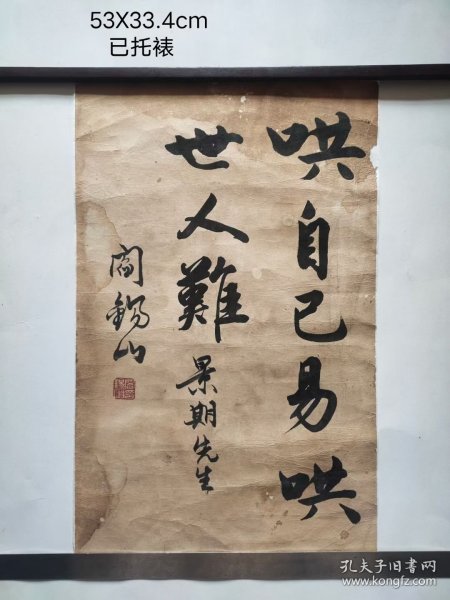 53X33.4cm
已托裱
哄自己易哄
世人難
景期先生
閻錫山
孔夫子旧书网
www.kongfz.com